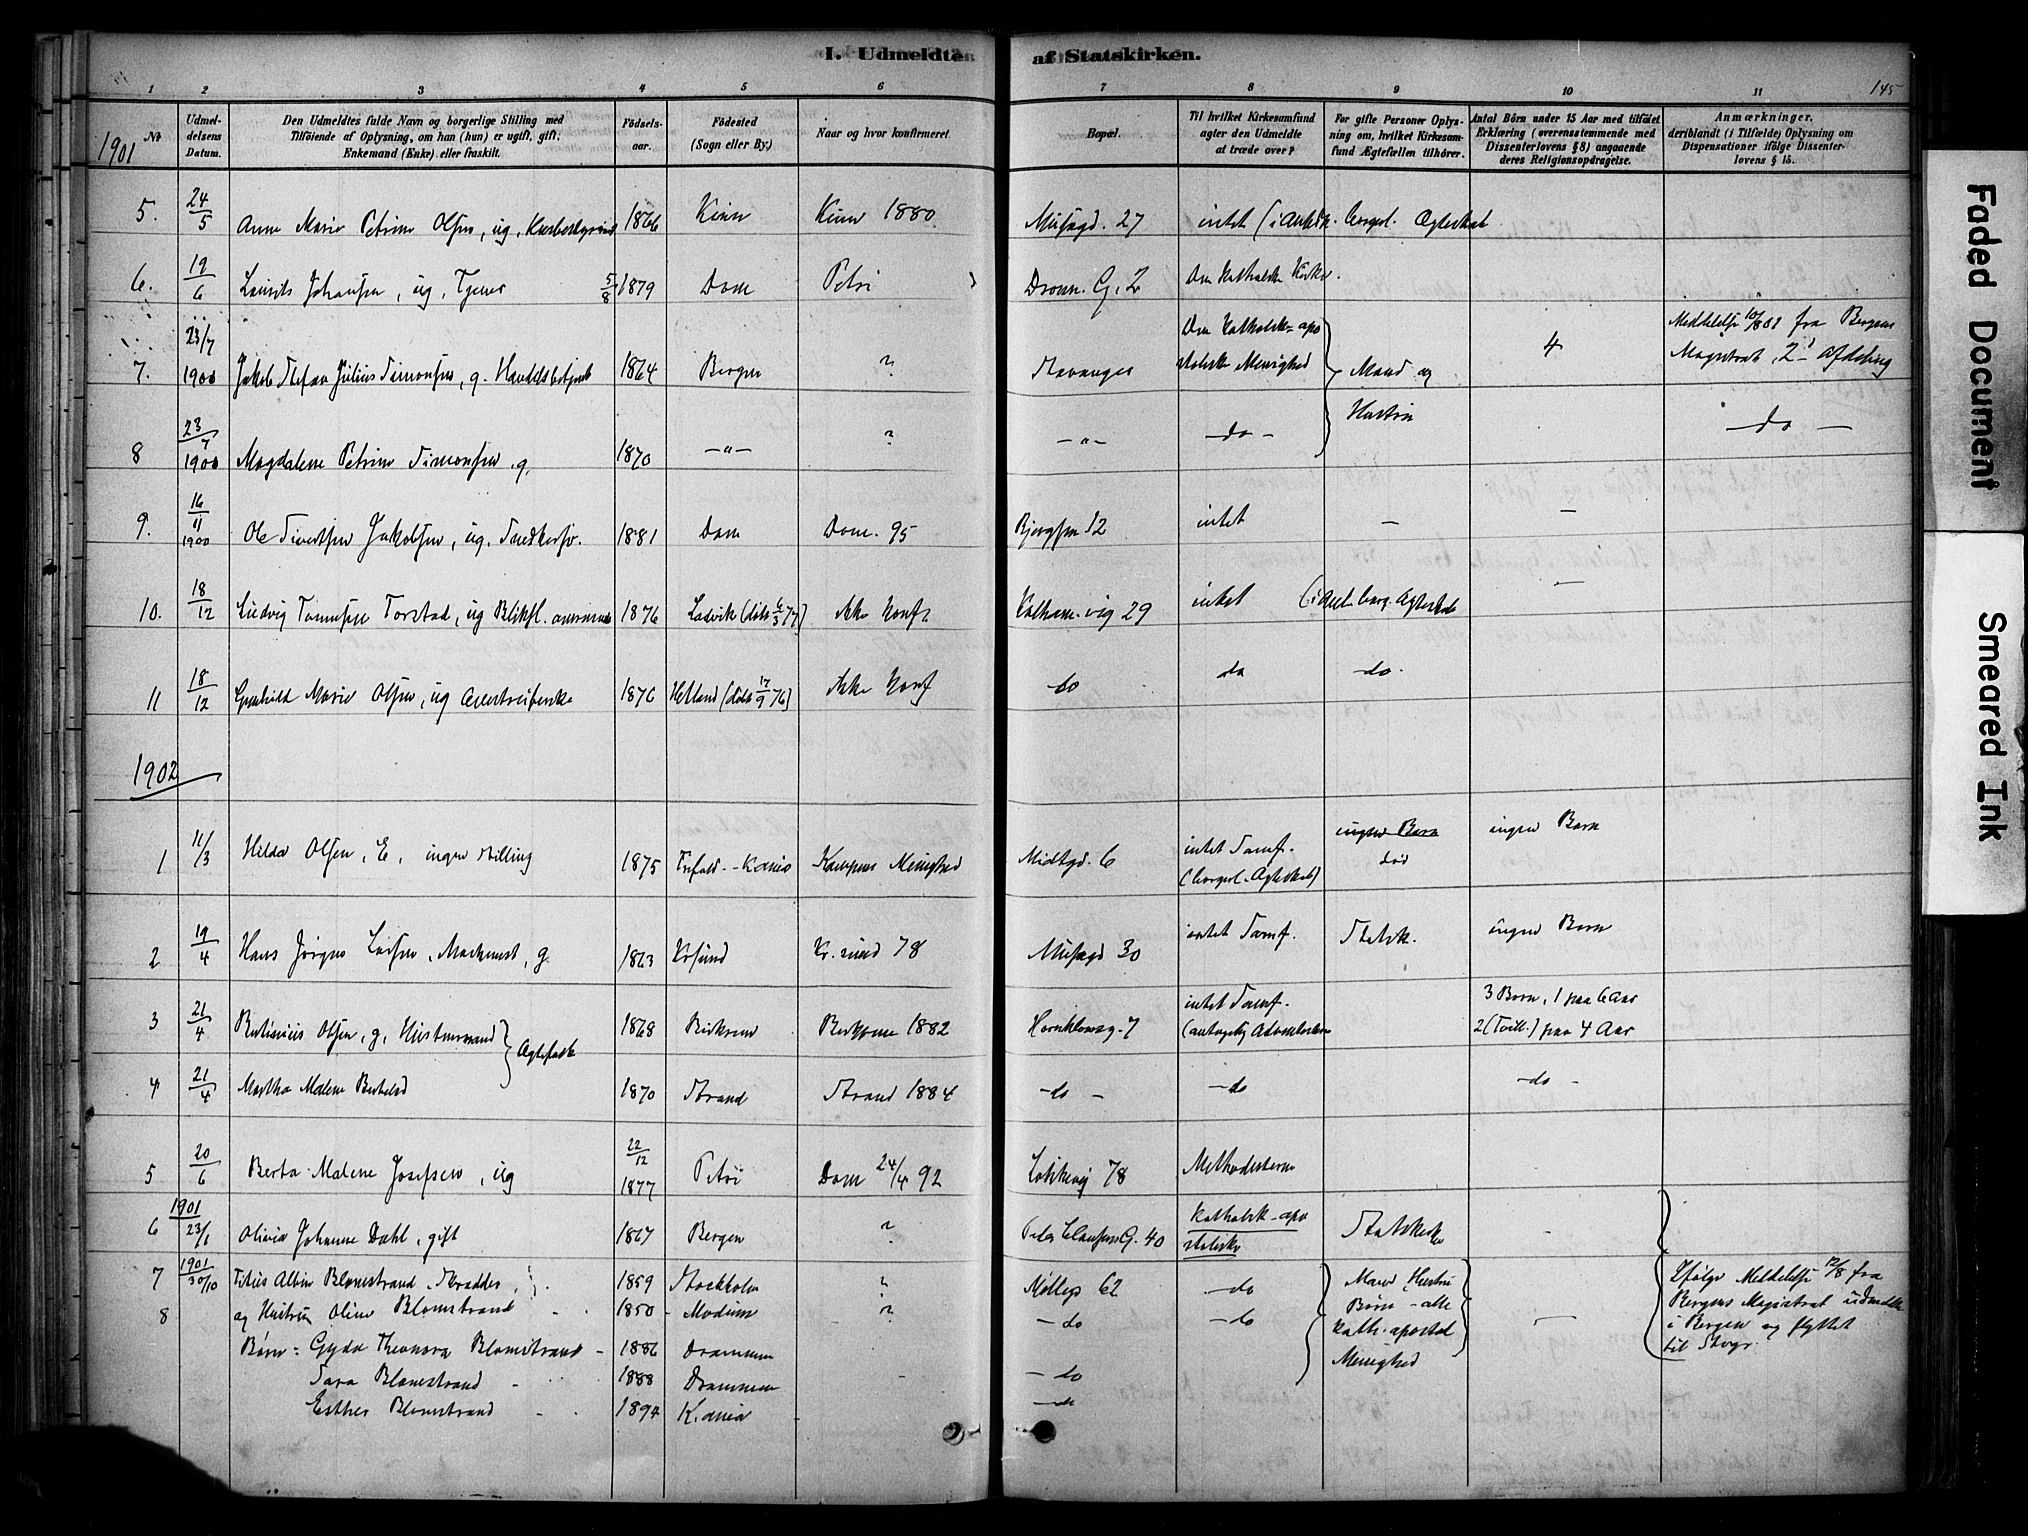 I. Udmeldte af Statskirken.
145
1 2 3 4 5 6 7 8 9 10 11
1901
No
Udmel-
delsens
Datum.
Den Udmeldtes fulde Navn og borgerlige Stilling med
Tilföiende af Oplysning, om han (hun) er ugift, gift,
Enkemand (Enke) eller fraskilt.
Födsels-
aar.
Födested
(Sogn eller By.)
Naar og hvor konfirmeret.
Bopæl.
Til hvilket Kirkesamfund
agter den Udmeldte
at træde over?
For gifte Personer Oplys-
ning om, hvilket Kirkesam-
fund Ægtefællen tilhörer.
Antal Börn under 15 Aar med tilföiet
Erklæring (overensstemmende med
Dissenterlovens § 8) angaaende
deres Religionsopdragelse.
Anmærkninger,
deriblandt (i Tilfælde) Oplysning om
Dispensationer ifölge Dissenter-
lovens § 15.
5. 24/5 Anne Marie Petrine Olsen, ug, 1866 Kinn Kinn 1880 Musægd. 27 intet borgerl. Ægteskab
6. 19/6 Laurits Johansen, ug, Tjener 5/8 1879 Dom Petri Dronn. G. 2 Den katholske Kirke.
7. 23/7 1900 Jakob Stefan Julius Simonsen, g. Handelsbetjent 1864 Bergen ? Stavanger Den katholsk-apo
stoliske Menighed Mand og 4 Meddelelse 10/8 01 fra Bergens
Magistrat, 2 Afdeling
8 23/7 1900 Magdalene Petrine Simonsen, g. 1870 -"- ? -"- -do- Hustru -do-
9. 16/11 1900 Ole Sivertsen Jakobsen, ug. Snedkersv. 1881 Dom Dom. 95 Bjergsen 12 intet - -
10. 18/12 Ludvig Tonnesen Torstad, ug Blikksl. 1876 Ladvik (døbt 6/3 77) ikke konf. Kathari. vig 29 intet (i Ægteskab -
11 18/12 Gunhild Marie Olsen, ug 1876 Hetland (døbt 17/9 76) ikke konf do do do.
1902
1 11/3 Hilda Olsen, E, ingen Stilling 1875 K.ania Kampens Menighed Midtgd. 6 intet Samf.
(borgerl. Ægteskab) ingen Børn
død ingen Børn
2 19/4 Hans Jørgen Larsen, Maskinist, g. 1863 Krsund Kr. sund 78 Musægd 30 intet Samf. Statsk. ingen Børn
3 21/4 Bertinius Olsen, g, Hustru 1868 Birkrem 1882 7 intet Samf.
3 Børn, 1 paa 6 Aar
2 (Tvill.) paa 4 Aar
Ægtefolk
4 21/4 Martha Malene Bertelsd 1870 Strand Strand 1884 -do- -do -do-
5 20/6 Berta Malene Josefsen, ug 22/12 1877 Petri Dom 24/4 92 78 Methodisterne
6 1901 23/1 Olivia Johanne Dahl, gift 1867 Bergen ? Peder Claussens G. 40 katholsk-apo
stoliske Statskirke -
7 1901 30/10 Titus Albin Blomstrand, Skrædder, 1859 Stockholm ?Ølleg 62 -do Mand Hustru
8 og Hustru Oline Blomstrand 1850 - Modum ? -do -do Børn - alle
kath-apostol
Menighed
Ifølge Meddelelse 12/8 fra
Bergens Magistrat udmeldt
i Bergen og flyttet
til Stvgr.
Børn: Gyda Theonora Blomstrand - 1886 Drammen
Sara Blomstrand - 1888 Drammen -do
Esther Blomstrand - 1894 K.ania -do
Faded Document
Smeared Ink